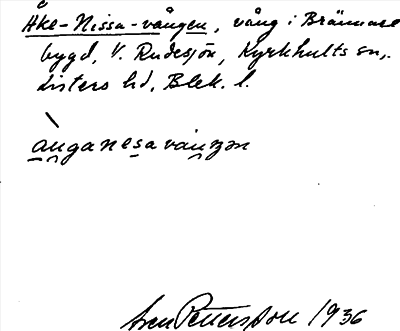 Åke-Nissa-vången, vång i Brännare
bygd, V. Rudesjön, Kyrkhults sn,.
Listers hd, Blek. l.
anganesa vaŋgən
Sven Pettersson 1936